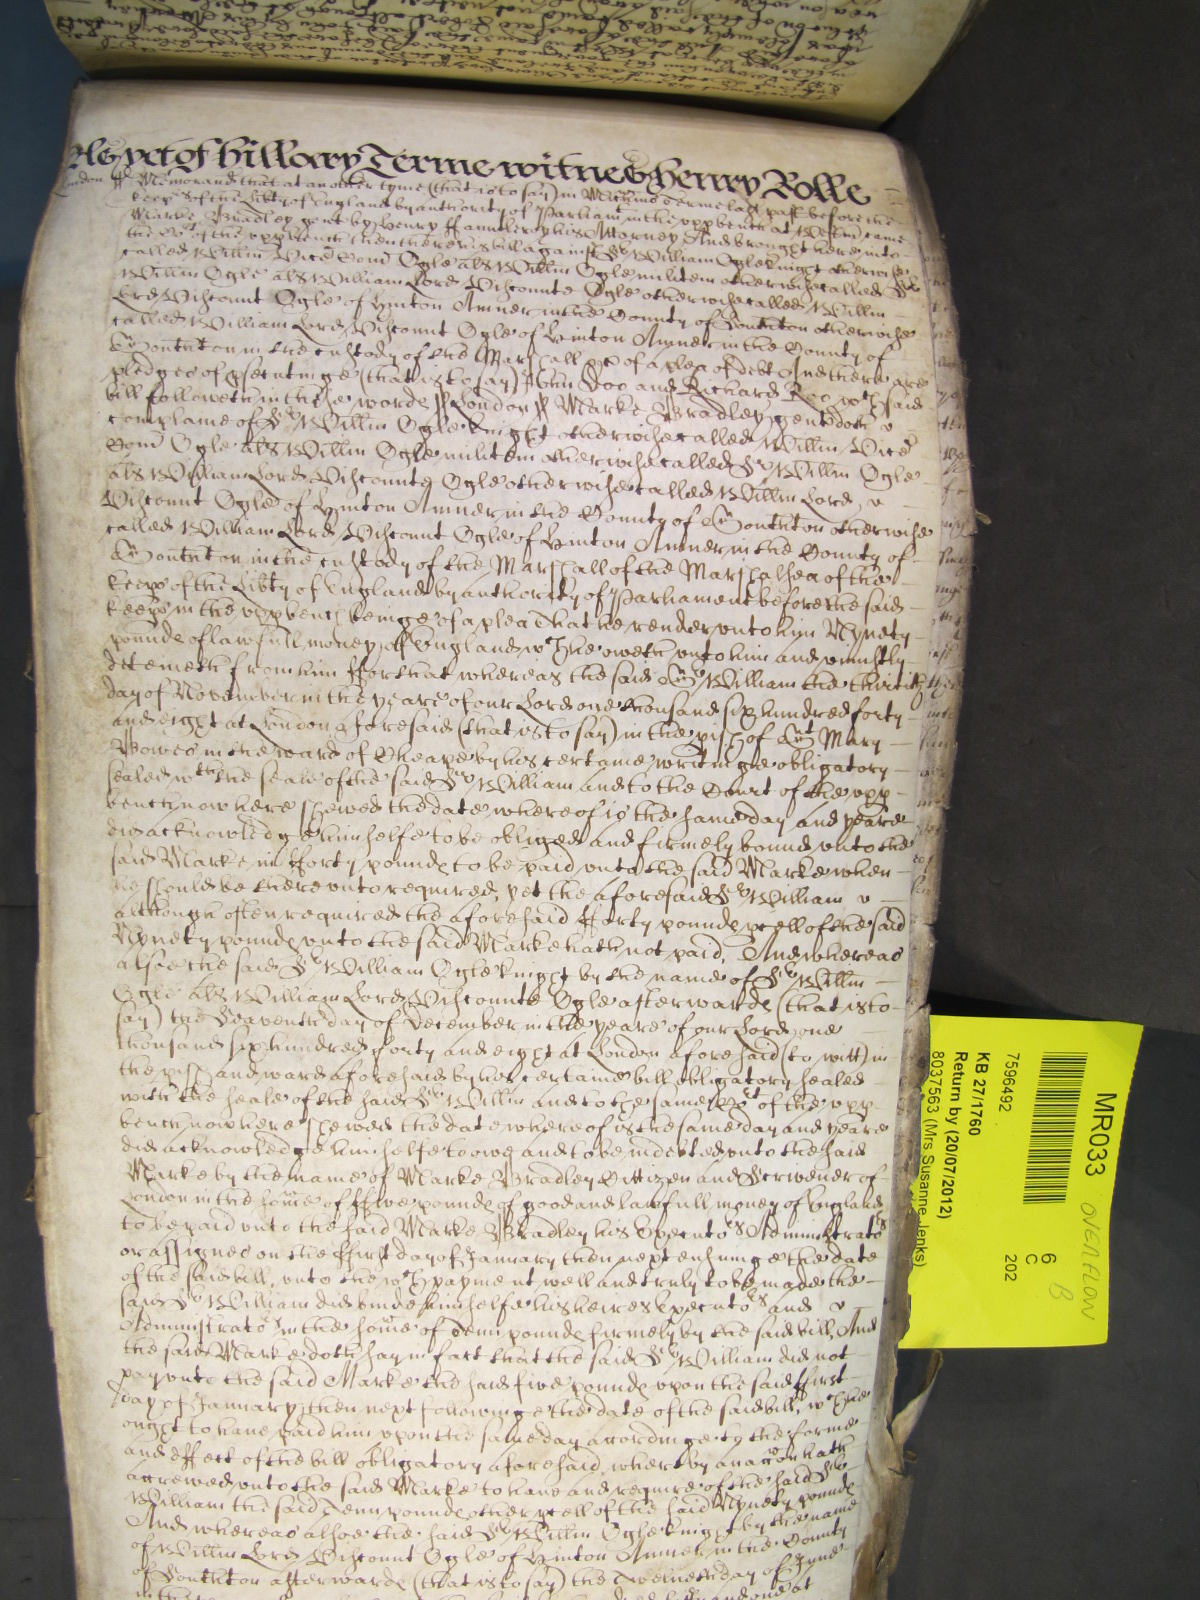 As yet of Hillary Terme witnes Henry Rolle
London ss Memorand that at another tyme (that is to say) in Michmas Terme last past before the
keeps of the Libty of England by authority of Parliamt in the uppbench at Westm came
Marke Bradley gent by Henry his Attorney And brought here into
the Cort of the uppbench then there his bill against Sr William Ogle knight otherwise
called Willm Vice Com Ogle als Willm Ogle militem otherwise called Sr
Willm Ogle als William Lord Viscounte Ogle otherwise called Willm
Lord Viscount Ogle of Hinton Amner in the County of Southton otherwise
called William Lord Viscount Ogle of Hinton Amner in the County of
Southton in the custody of the Marshall &c of a plea of debt And there are
pledges of psecutinge (that is to say) John Doo and Richard Roo wch said
bill followeth in these words ss London ss Marke Bradley gent doth
complaine of Sr Willm Ogle knight otherwise called Willm Vice
Com Ogle als Willm Ogle militem otherwise called Sr Willm Ogle
als William Lord Viscounte Ogle otherwise called Willm Lord
Viscount Ogle of Hinton Amner in the County of Southton otherwise
called William Lord Viscount Ogle of Hinton Amner in the County of
Southton in the custody of the Marshall of the Marshalsea of the
keeps of the Libty of England by authority of Parliament before the said
keeps in the uppbench beinge of a plea That he render unto him Nynety
pounds of lawfull money of England wch he oweth unto him and uniustly
deteineth from him ffor that whereas the said Sr William the thirtith
day of November in the yeare of our Lord one thousand six hundred forty
and eight at London aforesaid (that is to say) in the pish of St Mary
Bowes in the ward of Cheape by his certaine writinge obligatory
sealed wth the seale of the said Sr William and to the Court of the upp
bench now here shewed the date whereof is the same day and yeare
did acknowledge himselfe to be obliged and firmely bound unto the
said Marke in fforty pounds to be paid unto the said Marke when
he should be thereunto required, yet the aforesaid Sr William
although often required the aforesaid fforty pounds pcell of the said
Nynety pounds unto the said Marke hath not paid, And whereas
alsoe the said Sr William Ogle knight by the name of Sr Willm
Ogle als William Lord Viscounte Ogle afterwards (that is to
say) the Seaventh day of December in the yeare of our Lord one
thousand six hundred forty and eight at London aforesaid (to witt) in
the pish and ward aforesaid by his certaine bill obligatory sealed
with the seale of the said Sr Willm and to the same Cort of the upp
bench now here shewed the date whereof is the same day and yeare
did acknowledge himselfe to owe and to be indebted unto the said
Marke by the name of Marke Bradley Cittizen and Scrivener of
London in the some of ffive pounds of good and lawfull money of England
to be paid unto the said Marke Bradley his Executors Administrators
or assignes on the ffirst day of January then next ensuinge the date
of the said bill, unto the wch payment well and truly to be made the
said Sr William did binde himselfe his heires Executors and
Administrators in the some of Tenn pounds firmely by the said bill, And
the said Marke doth say in fact that the said Sr William did not
pay unto the said Marke the said five pounds upon the said ffirst
day of January then next followinge the date of the said bill, wch he
ought to have paid him upon the same day accordinge to the forme
and effect of the bill obligatory aforesaid, whereby an accon hath
accrewed unto the said Marke to have and require of the said Sr
William the said Tenn pounds other pcell of the said Nynety pounds
And whereas alsoe the said Sr Willm Ogle knight by the name
of Willm Lord Viscount Ogle of Hinton Amner in the County
of Southton afterwards (that is to say) the Twentieth day of June
MR033 OVERFLOW
B
6
C
202
7596492
KB 27/1760
Return by (20/07/2012)
8037563 (Mrs Susanne Jenks)